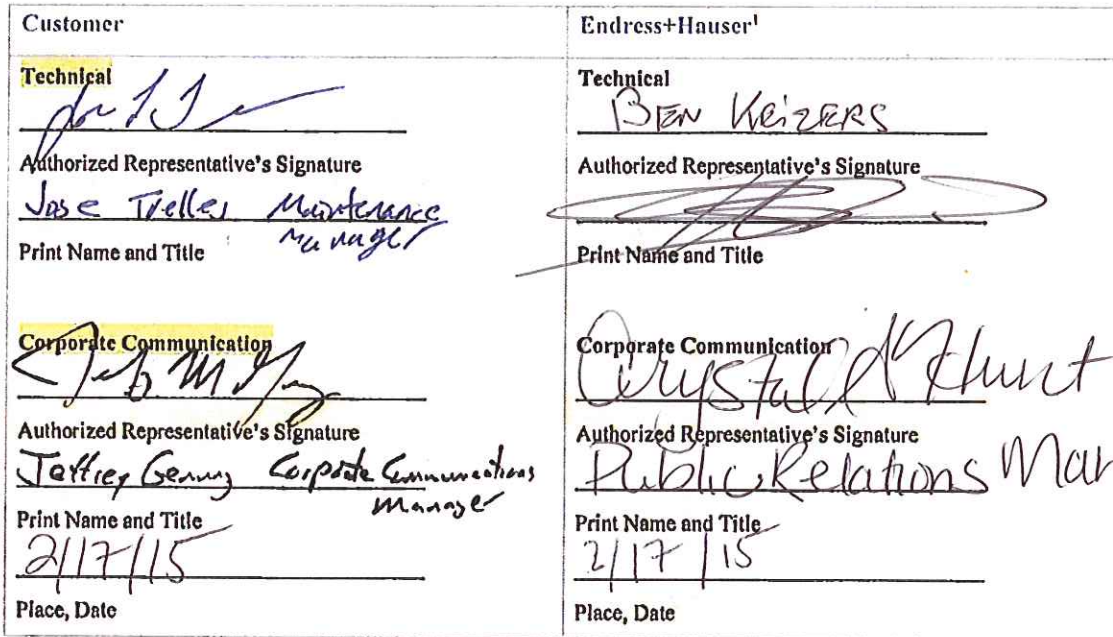 Customer
Technical
Authorized Representative's Signature
Jose Trelles Maintenance
Manager
Print Name and Title
Corporate Communication
Authorized Representative's Signature
Jeffrey Corporate Communications
Manager
Print Name and Title
2/17/15
Place, Date
Endress+Hauser¹
Technical
BEN KEIZERS
Authorized Representative's Signature
Print Name and Title
Corporate Communication
Crystal Hunt
Authorized Representative's Signature
Public Relations Man
Print Name and Title
2/17/15
Place, Date